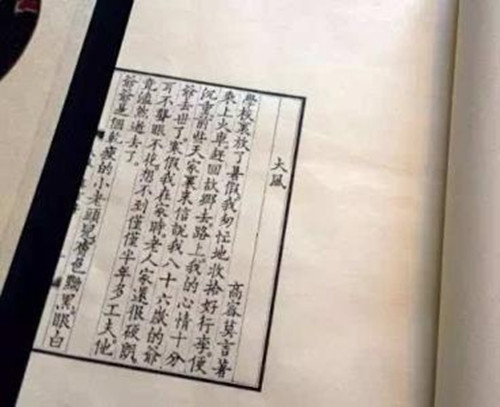 大風
高密莫言著
學校裏放了暑假，我匆忙地收拾好行李，便
乘上火車，趕回故鄉去。路上，我的心情十分
沉重。前些天家裏來信說，我八十六歲的爺
爺去世了。寒假我在家時，老人家還很硬朗，
耳不聾眼不花，想不到僅僅半年多工夫，他
竟溘然逝去了。
爺爺是個乾瘦的小老頭兒，膚色黝黑，眼白